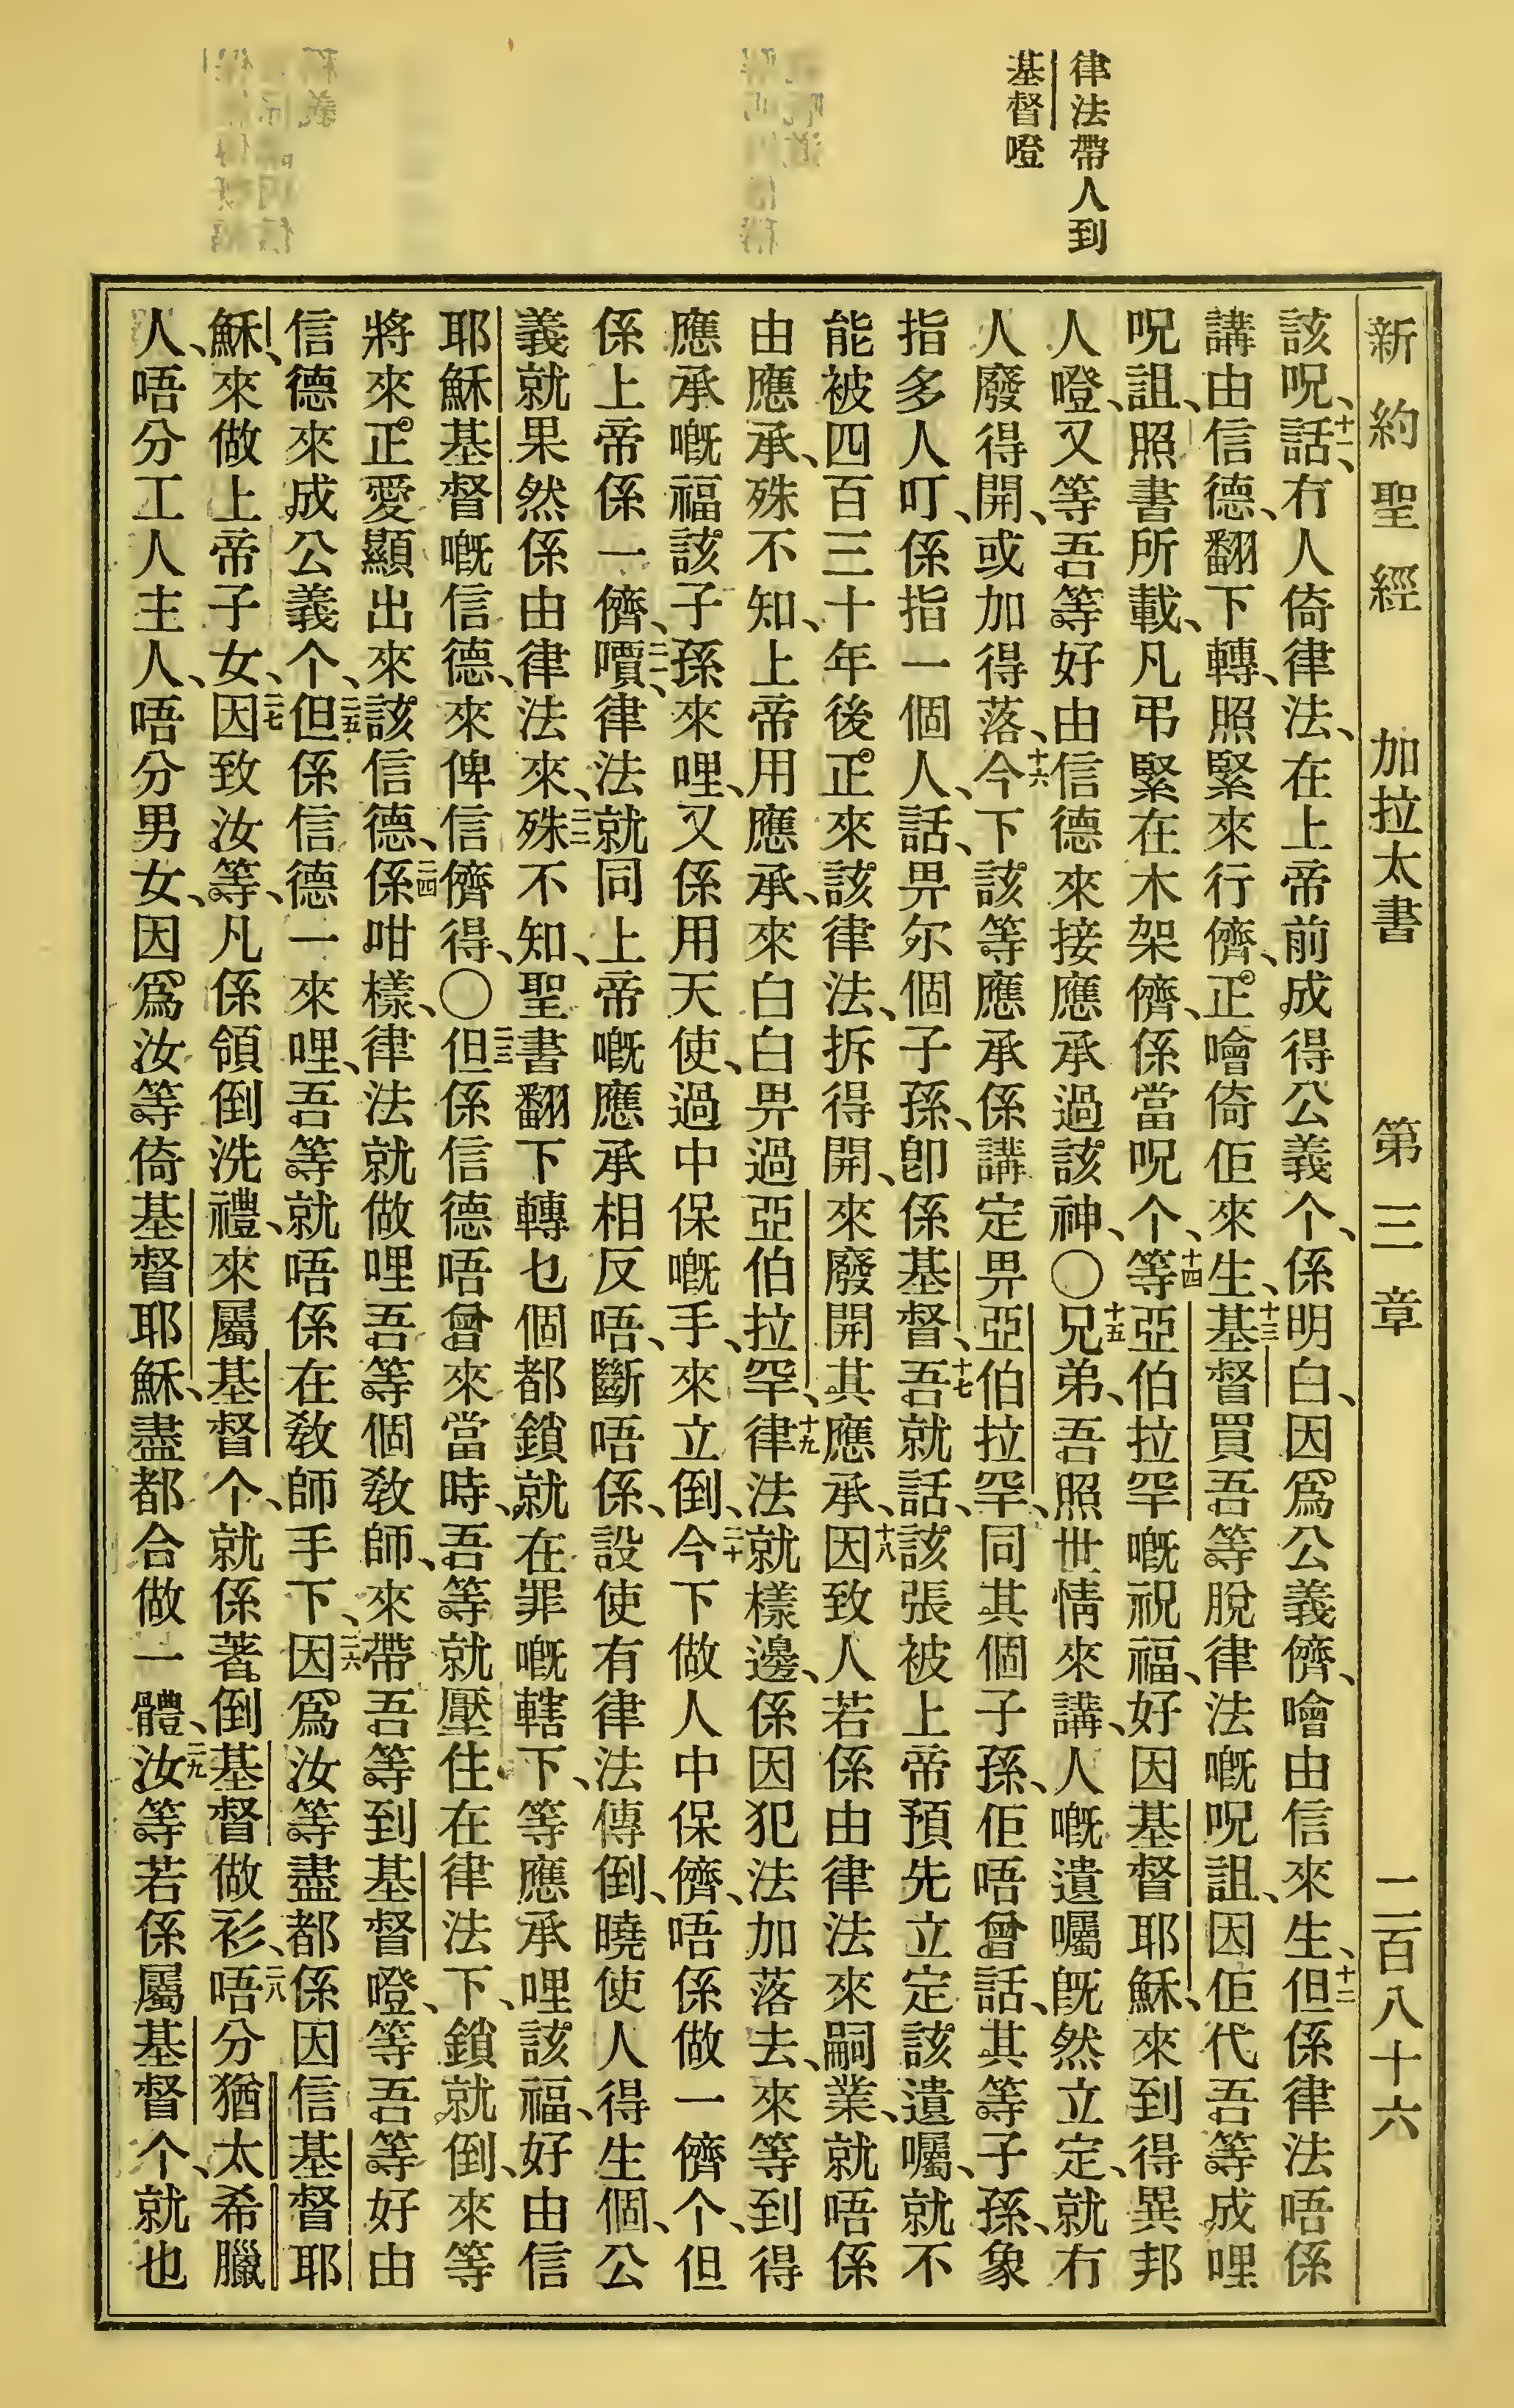 律法帶人到
基督噔
新約聖經 加拉太書 第三章 二百八十六
該呪、十一話、冇人倚律法、在上帝前成得公義个、係明白、因爲公義儕、噲由信來生、十二但係律法唔係
講由信德、翻下轉、照緊來行儕、正噲倚佢來生、十三基督買吾等脫律法嘅呪詛、因佢代吾等成哩
呪詛、照書所載、凡弔緊在木架儕、係當呪个、十四等亞伯拉罕嘅祝福、好因基督耶穌、來到得異邦
人噔、又等吾等好由信德來接應承過該神、〇十五兄弟、吾照世情來講、人嘅遺囑旣然立定、就冇
人廢得開、或加得落、十六今下該等應承係講定畀亞伯拉罕、同其個子孫、佢唔曾話、其等子孫、象
指多人叮、係指一個人、話、畀尔個子孫、卽係基督、十七吾就話、該張被上帝預先立定該遺囑、就不
能被四百三十年後正來該律法、拆得開、來廢開其應承、十八因致人若係由律法來嗣業、就唔係
由應承、殊不知、上帝用應承、來白白畀過亞伯拉罕、十九律法就樣邊、係因犯法加落去、來等到得
應承嘅福該子孫來哩、又係用天使、過中保嘅手、來立倒、二十今下做人中保儕、唔係做一儕个、但
係上帝係一儕、二一嘳律法就同上帝嘅應承相反唔、斷唔係、設使有律法傳倒、曉使人得生個、公
義就果然係由律法來、二二殊不知、聖書翻下轉乜個都鎖就在罪嘅轄下、等應承哩該福、好由信
耶穌基督嘅信德、來俾信儕得、〇二三但係信德唔曾來當時、吾等就壓住在律法下、鎖就倒、來等
將來正愛顯出來該信德、二四係咁樣、律法就做哩吾等個敎師、來帶吾等到基督噔、等吾等好由
信德來成公義个、二五但係信德一來哩、吾等就唔係在敎師手下、二六因爲汝等盡都係因信基督耶
穌、來做上帝子女、二七因致汝等、凡係領倒洗禮、來屬基督个、就係著倒基督做衫、二八唔分猶太希臘
人、唔分工人主人、唔分男女、因爲汝等倚基督耶穌、盡都合做一體、二九汝等若係屬基督个、就也